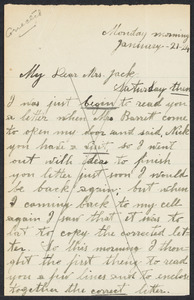 Answered
Monday morning
January - 21-24
My Dear Mrs. Jack
Saturday
I was just begun to read you
a letter when Mr. Barrett come
to open my door and said, Nick
you have a visit, so I went
out with ideas to finish
you letter just soon I would
be back again; but when
I coming back to my cell
again I saw that it was to
lat to copy the corrected let-
ter. So this morning I thou-
ght the first thene to read
you a few lines and to enclose
together the correct letter.